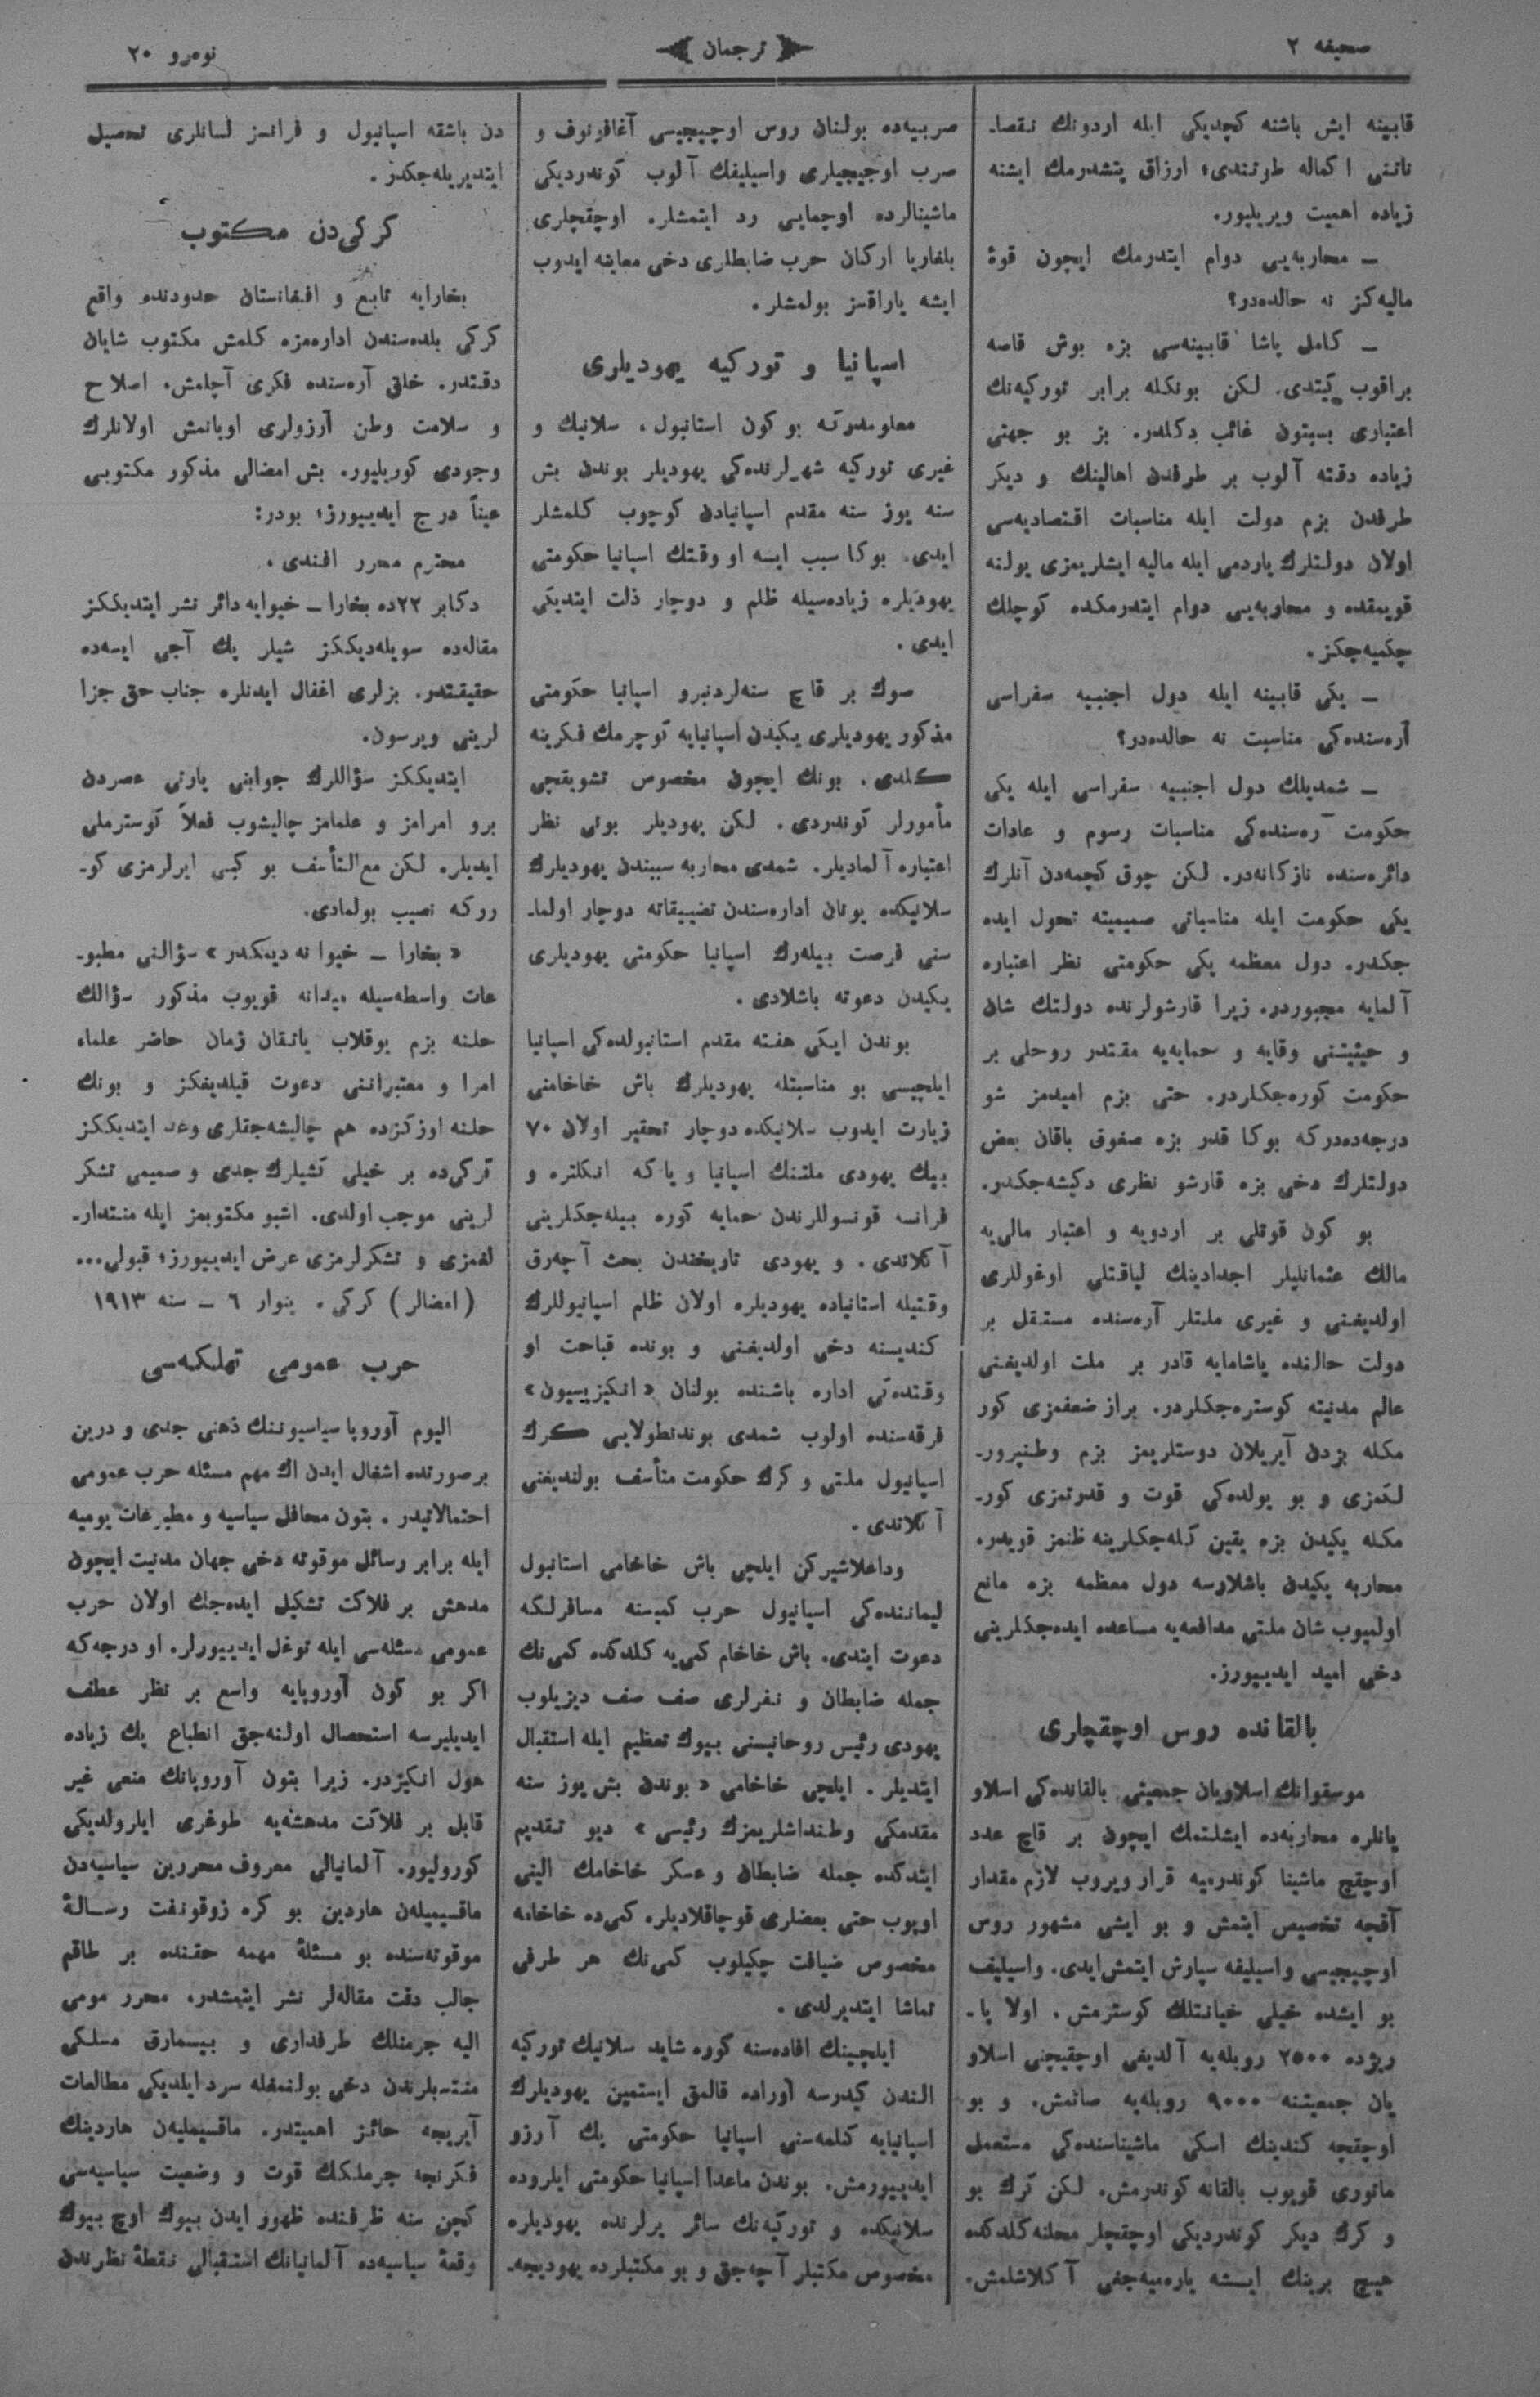 صحیفه ٢
ترجمان
نومرو ٢٠
قابینه ایش باشنه کچدیکی ایله اردونك نقصا-
ناتنی اکماله طوتندی؛ ارزاق یتشدرمك ایشنه
زیاده اهمیت ویریلیور.
– محاربه‌یی دوام ایتدرمك ایچون قوۀ
مالیه‌کز نه حالده‌در؟
– کامل پاشا قابینه‌سی بزه بوش قاصه
براقوب کیتدی. لکن بونکله برابر تورکیه‌نك
اعتباری بسبتون غائب دکلدر. بز بو جهتی
زیاده دقته آلوب بر طرفدن اهالینك و دیکر
طرفدن بزم دولت ایله مناسبات اقتصادیه‌سی
اولان دولتلرك یاردمی ایله مالیه ایشلریمزی یولنه
قویمقده و محاربه‌یی دوام ایتدرمکده کوچلك
چکمیه‌جکز.
– یکی قابینه ایله دول اجنبیه سفراسی
آره‌سنده‌کی مناسبت نه حالده‌در؟
– شمدیلك دول اجنبیه سفراسی ایله یکی
حکومت آره‌سنده‌کی مناسبات رسوم و عادات
دائره‌سنده نازکانه‌در. لکن چوق کچمه‌دن آنلرك
یکی حکومت ایله مناسباتی صمیمیته تحول ایده
جکدر. دول معظمه یکی حکومتی نظر اعتباره
آلمایه مجبوردر. زیرا قارشولرنده دولتك شان
و حیثیتنی وقایه و حمایه‌یه مقتدر روحلی بر
حکومت کوره‌جکلردر. حتی بزم امیدمز شو
درجه‌ده‌درکه بوکا قدر بزه صغوق باقان بعض
دولتلرك دخی بزه قارشو نظری دکیشه‌جکدر.
بو کون قوتلی بر اردویه و اعتبار مالی‌یه
مالك عثمانلیلر اجدادینك لیاقتلی اوغوللری
اولدیغنی و غیری ملتلر آره‌سنده مستقل بر
دولت حالنده یاشامایه قادر بر ملت اولدیغنی
عالم مدنیته کوستره‌جکلردر. براز ضعفمزی کور
مکله بزدن آیریلان دوستلریمز بزم وطنپرور-
لکمزی و بو یولده‌کی قوت و قدرتمزی کور-
مکله یکیدن بزه یقین کله‌جکلرینه ظنمز قویدر.
محاربه یکیدن باشلارسه دول معظمه بزه مانع
اولمیوب شان ملتی مدافعه‌یه مساعده ایده‌جکلرینی
دخی امید ایدییورز.
بالقانده روس اوچقچلری
موسقوانك اسلاویان جمعیتی بالقانده‌کی اسلاو
یانلره محاربه‌ده ایشلتمك ایچون بر قاچ عدد
اوچقچ ماشینا کوندرمیه قرار ویروب لازم مقدار
آقچه تخصیص ایتمش و بو ایشی مشهور روس
اوچیجیسی واسیلیفه سپارش ایتمش‌ایدی. واسیلیف
بو ایشده خیلی خیانتلك کوسترمش. اولا پا-
ریژده ٢٥٠٠ روبله‌یه آلدیغی اوچقیچنی اسلاو
یان جمعیتنه ٩٠٠٠ روبله‌یه صاتمش. و بو
اوچقچه کندینك اسکی ماشیناسنده‌کی مستعمل
ماتوری قویوب بالقانه کوندرمش. لکن کرك بو
و کرك دیکر کوندردیکی اوچقچلر محلنه کلدکده
هیچ برینك ایشه یارمیه‌جغی آکلاشلمش.
صربیه‌ده بولنان روس اوچیجیسی آغافونوف و
صرب اوجیجیلری واسیلیفك آلوب کوندردیکی
ماشینالرده اوچمایی رد ایتمشلر. اوچقچلری
بلغاریا ارکان حرب ضابطلری دخی معاینه ایدوب
ایشه یاراقسز بولمشلر.
اسپانیا و تورکیه یهودیلری
معلومدرکه بو کون استانبول، سلانیك و
غیری تورکیه شهرلرنده‌کی یهودیلر بوندن بش
سنه یوز سنه مقدم اسپانیادن کوچوب کلمشلر
ایدی. بوکا سبب ایسه او وقتك اسپانیا حکومتی
یهودیلره زیاده‌سیله ظلم و دوچار ذلت ایتدیکی
ایدی.
صوك بر قاچ سنه‌لردنبرو اسپانیا حکومتی
مذکور یهودیلری یکیدن اسپانیایه کوچرمك فکرینه
کلدی. بونك ایچون مخصوص تشویقچی
مأمورلر کوندردی. لکن یهودیلر بونی نظر
اعتباره آلمادیلر. شمدی محاربه سببندن یهودیلرك
سلانیکده یونان اداره‌سندن تضییقاته دوچار اولما-
سنی فرصت بیله‌رك اسپانیا حکومتی یهودیلری
یکیدن دعوته باشلادی.
بوندن ایکی هفته مقدم استانبولده‌کی اسپانیا
ایلچیسی بو مناسبتله یهودیلرك باش خاخامنی
زیارت ایدوب سلانیکده دوچار تحقیر اولان ٧٠
بیك یهودی ملتنك اسپانیا ویاکه انکلتره و
فرانسه قونسوللرندن حمایه کوره بیله‌جکلرینی
آکلاتدی. و یهودی تاریخندن بحث آچه‌رق
وقتیله اسپانیاده یهودیلره اولان ظلم اسپانیوللرك
کندیسنه دخی اولدیغنی و بونده قباحت او
وقتده‌کی اداره باشنده بولنان «انکیزیسیون»
فرقه‌سنده اولوب شمدی بوندنطولایی کرك
اسپانیول ملتی و کرك حکومت متأسف بولندیغنی
آکلاتدی.
وداعلاشیرکن ایلچی باش خاخامی استانبول
لیماننده‌کی اسپانیول حرب کمیسنه مسافرلکه
دعوت ایتدی. باش خاخام کمی‌یه کلدکده کمی‌نك
جمله ضابطان و نفرلری صف صف دیزیلوب
یهودی رئیس روحانیسنی بیوك تعظیم ایله استقبال
ایتدیلر. ایلچی خاخامی «بوندن بش یوز سنه
مقدمکی وطنداشلریمزك رئیسی» دیو تقدیم
ایتدکده جمله ضابطان و عسکر خاخامك الینی
اوپوب حتی بعضلری قوچاقلادیلر. کمی‌ده خاخامه
مخصوص ضیافت چکیلوب کمی‌نك هر طرفی
تماشا ایتدیرلدی.
ایلچینك افاده‌سنه کوره شاید سلانیك تورکیه
الندن کیدرسه اوراده قالمق ایستمین یهودیلرك
اسپانیایه کلمه‌سنی اسپانیا حکومتی پك آرزو
ایدییورمش. بوندن ماعدا اسپانیا حکومتی ایلروده
سلانیکده و تورکیه‌نك سائر یرلرنده یهودیلره
مخصوص مکتبلر آچه‌جق و بو مکتبلرده یهودیجه-
دن باشقه اسپانیول و فرانسز لسانلری تحصیل
ایتدیریله‌جکدر.
کرکی‌دن مکتوب
بخارایه تابع و افغانستان حدودنده واقع
کرکی بلده‌سندن اداره‌مزه کلمش مکتوب شایان
دقتدر. خلق آره‌سنده فکری آچلمش، اصلاح
و سلامت وطن آرزولری اویانمش اولانلرك
وجودی کوریلیور. بش امضالی مذکور مکتوبی
عیناً درج ایدییورز؛ بودر:
محترم محرر افندی.
دکابر ٢٢ده بخارا – خیوایه دائر نشر ایتدیککز
مقاله‌ده سویله‌دیککز شیلر پك آجی ایسه‌ده
حقیقتدر. بزلری اغفال ایدنلره جناب حق جزا
لرینی ویرسون.
ایتدیککز سؤاللرك جوابنی یارتی عصردن
برو امرامز و علمامز چالیشوب فعلاً کوسترملی
ایدیلر. لکن مع‌التأسف بو کبی ایرلرمزی کو-
رورکه نصیب بولمادی.
«بخارا – خیوا نه دیمکدر» سؤالنی مطبو-
عات واسطه‌سیله میدانه قویوب مذکور سؤالك
حلنه بزم یوقلاب یاتقان زمان حاضر علماء
امرا و معتبراننی دعوت قیلدیغکز و بونك
حلنه اوزکزده هم چالیشه‌جقلری وعد ایتدیککز
کرکی‌ده بر خیلی کشیلرك جدی و صمیمی تشکر
لرینی موجب اولدی. اشبو مکتوبمز ایله منتدار-
لغمزی و تشکرلرمزی عرض ایدییورز؛ قبولی...
(امضالر) کرکی. ینوار ٦ – سنه ١٩١٣
حرب عمومی تهلکه‌سی
الیوم آوروپا سیاسیوننك ذهنی جدی و درین
برصورتده اشغال ایدن اك مهم مسئله حرب عمومی
احتمالاتیدر. بتون محافل سیاسیه و مطبوعات یومیه
ایله برابر رسائل موقوته دخی جهان مدنیت ایچون
مدهش بر فلاکت تشکیل ایده‌جك اولان حرب
عمومی مسئله‌سی ایله توغل ایدییورلر. او درجه‌که
اکر بو کون آوروپایه واسع بر نظر عطف
ایدیلیرسه استحصال اولنه‌جق انطباع پك زیاده
هول انکیزدر. زیرا بتون آوروپانك منعی غیر
قابل بر فلاکت مدهشه‌یه طوغری ایلرولدیکی
کورولیور. آلمانیالی معروف محررین سیاسیه‌دن
ماقسیمیله‌ن هاردین بو کره زوقونفت رسالۀ
موقوته‌سنده بو مسئلۀ مهمه حقنده بر طاقم
جالب دقت مقاله‌لر نشر ایتمشدر. محرر مومی
الیه جرمنلك طرفداری و بیسمارق مسلکی
منتسبلرندن دخی بولنمغله سرد ایلدیکی مطالعات
آیریجه حائز اهمیتدر. ماقسیمیله‌ن هاردینك
فکرنجه جرملکك قوت و وضعیت سیاسیه‌سی
کچن سنه ظرفنده ظهور ایدن بیوك اوچ بیوك
وقعۀ سیاسیه‌ده آلمانیانك استقبالی نقطۀ نظرندن